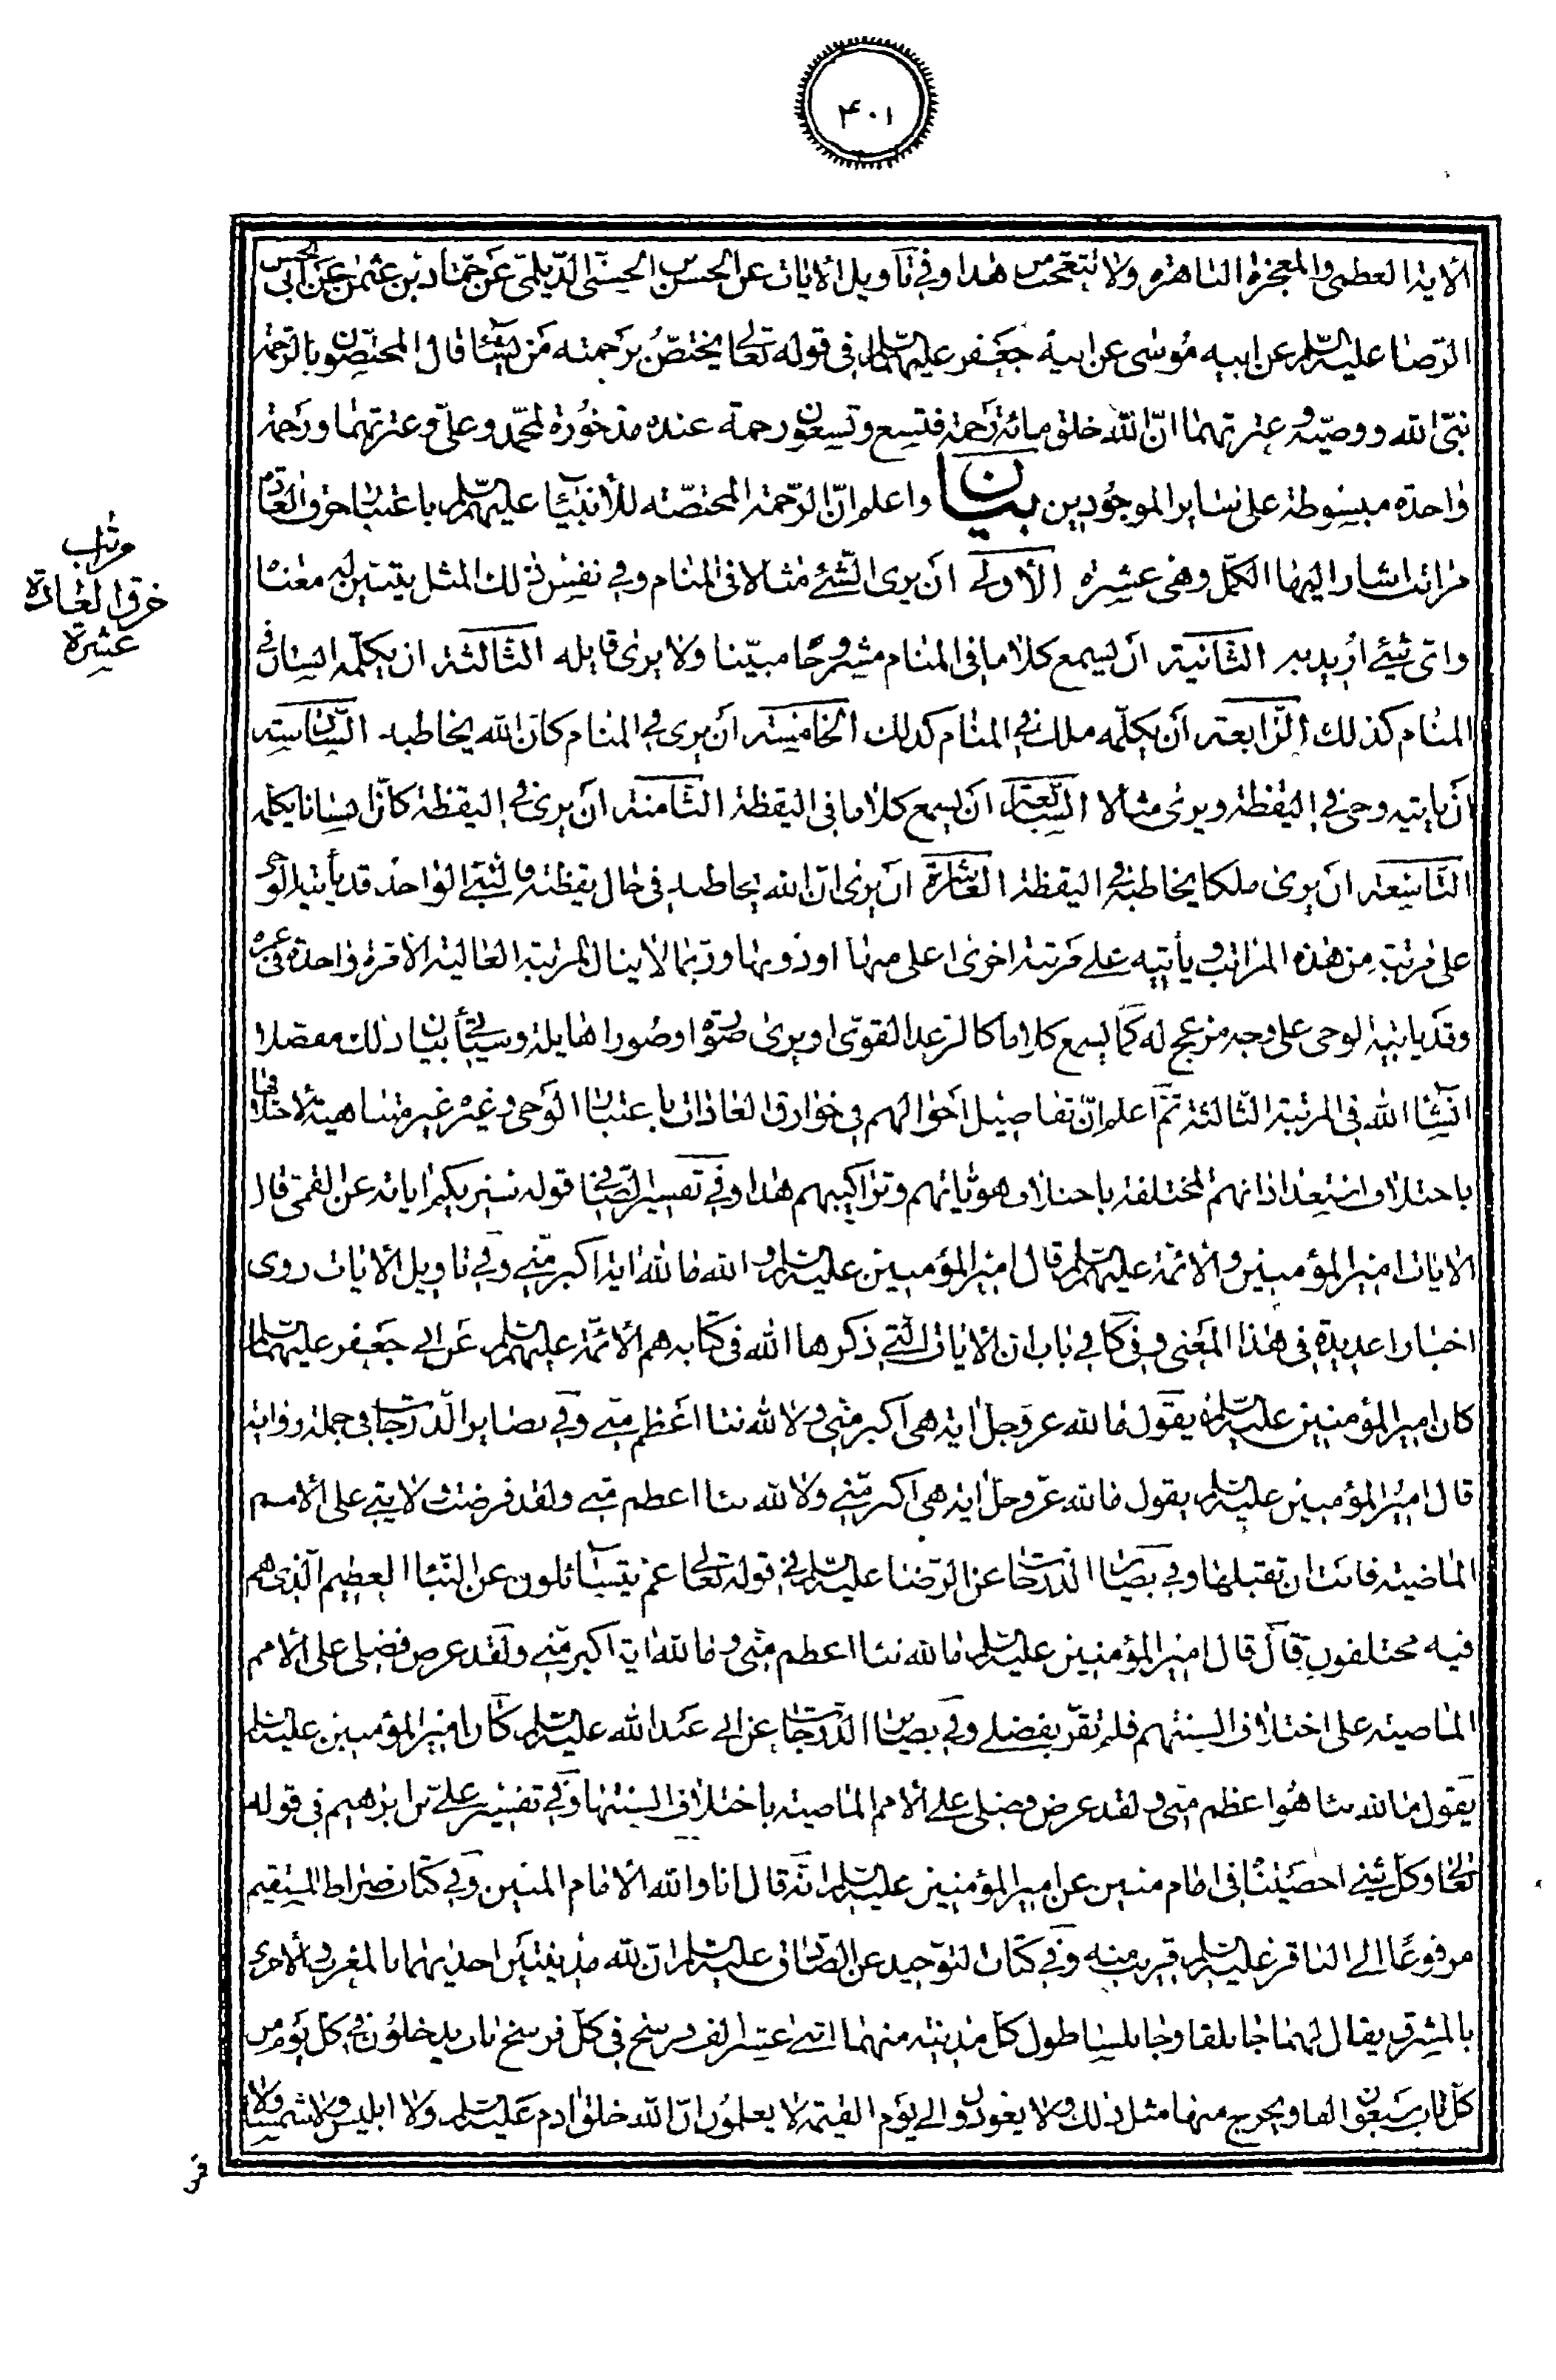 ۴۰۱
الایة العظمی والمعجزة الباهرة ولا تتعجب من هذا وفی تأویل الایات عن الحسن بن ابی الحسن الدیلمی عن حماد بن عثمن عن ابی الحسن
الرضا علیه السلم عن ابیه موسی عن ابیه جعفر علیهم السلم فی قوله تعالی یختص برحمته من یشاء قال المختصون بالرحمة
نبی الله ووصیه وعترتهما ان الله خلق مائة رحمة فتسع وتسعون رحمة عنده مذخورة لمحمد وعلی وعترتهما ورحمة
واحدة مبسوطة علی سایر الموجودین بیان واعلم ان الرحمة المختصة للأنبیاء علیهم السلم باعتبار خرق العادة
مراتب اشار الیها الکمل وهی عشرة الأولی ان یری الشئ مثالا فی المنام وفی نفس ذلك المثل یتبین له معناه
وای شئ ارید به الثانیة ان یسمع کلاما فی المنام مشروحا مبینا ولا یری قایله الثالثة ان یکلمه انسان فی
المنام کذلك الرابعة ان یکلمه ملك فی المنام کذلك الخامسة ان یری فی المنام کان الله یخاطبه السادسة
ان یاتیه وحی فی الیقظة ویری مثالا السابعة ان یسمع کلاما فی الیقظة الثامنة ان یری فی الیقظة کان انسانا یکلمه
التاسعة ان یری ملکا یخاطبه فی الیقظة العاشرة ان یری ان الله یخاطبه فی حال یقظته والنبی الواحد قد یأتیه الوحی
علی مرتبة من هذه المراتب ویأتیه علی مرتبة اخری اعلی منها او دونها وربما لا ینال المرتبة العالیة الا مرة واحدة فی عمره
وقد یاتیه الوحی علی وجه مزعج له کما یسمع کلاما کالرعد القوی او یری صورة او صورا هایلة وسیأتی بیان ذلك مفصلا
انشاء الله فی المرتبة الثالثة ثم اعلم ان تفاصیل احوالهم فی خوارق العادات باعتبار الوحی وغیره غیر متناهیة لاختلافها
باختلاف استعداداتهم المختلفة باختلاف هویاتهم وتراکیبهم هذا وفی تفسیر الصافی قوله سنریکم ایاته عن القمی قال
الایات امیر المؤمنین والأئمة علیهم السلم قال امیر المؤمنین علیه السلم والله ما لله ایة اکبر منی وفی تاویل الأیات روی
اخبارا عدیدة فی هذا المعنی وفی کافی باب ان الأیات التی ذکرها الله فی کتابه هم الأئمة علیهم السلم عن ابی جعفر علیهما السلم
کان امیر المؤمنین علیه السلم یقول ما لله عز وجل ایة هی اکبر منی ولا لله نبا اعظم منی وفی بصایر الدرجات فی جملة روایة
قال امیر المؤمنین علیه السلم یقول ما لله عز وجل ایة هی اکبر منی ولا لله نبا اعظم منی ولقد فرضت ولایتی علی الأمم
الماضیة فابت ان تقبلها وفی بصایر الدرجات عن الرضا علیه السلم فی قوله تعالی عم یتساءلون عن النبا العظیم الذی هم
فیه مختلفون قال قال امیر المؤمنین علیه السلم ما لله نبا اعظم منی وما لله ایة اکبر منی ولقد عرض فضلی علی الأمم
الماضیة علی اختلاف السنتهم فلم تقر بفضلی وفی بصایر الدرجات عن ابی عبد الله علیه السلم کان امیر المؤمنین علیه السلم
یقول ما لله نبا هو اعظم منی ولقد عرض فضلی علی الأمم الماضیة باختلاف السنتها وفی تفسیر علی بن ابرهیم فی قوله
تعالی وکل شئ احصیناه فی امام مبین عن امیر المؤمنین علیه السلم انه قال انا والله الامام المبین وفی کتاب صراط المستقیم
مرفوعا الی الباقر علیه السلم قریب منه وفی کتاب التوحید عن الصادق علیه السلم ان لله مدینتین احدیهما بالمغرب والأخری
بالمشرق یقال لهما جابلقا وجابلسا طول کل مدینة منهما اثنی عشر الف فرسخ فی کل فرسخ باب یدخلون فی کل یوم من
کل باب سبعون الفا ویخرج منها مثل ذلك ولا یعودون الی یوم القیمة لا یعلمون ان الله خلق ادم علیه السلم ولا ابلیس ولا شمسا ولا
مراتب
خرق العادة
عشرة